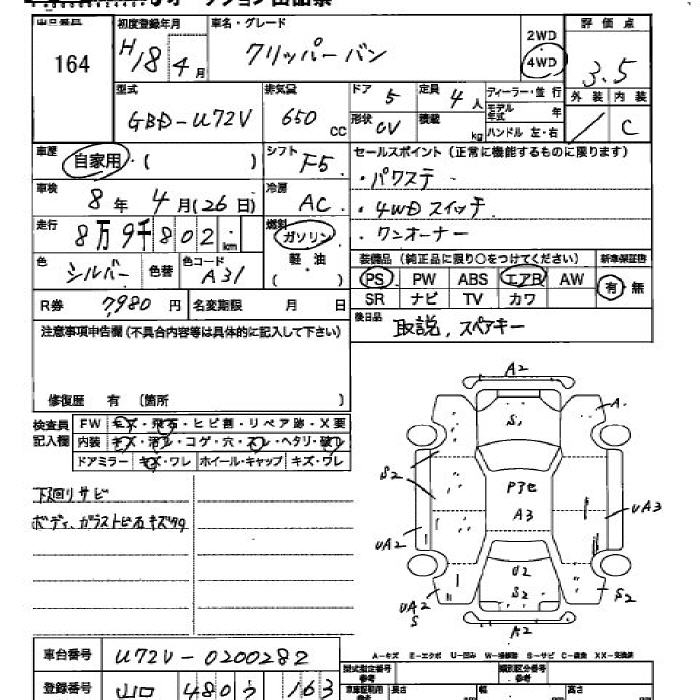 164
初度登録年月
H18年4月
車名・グレード
クリッパーバン
2WD
4WD
評価点
3.5
型式
GBD-U72V
排気量
650 CC
ドア 5
定員 4人
形状 OV
積載 kg
ディーラー・並行
モデル年式 年
ハンドル 左・右
外装 内装
/ C
車歴
自家用・( )
シフト F5
セールスポイント(正常に機能するものに限ります)
・パワステ
・4WDスイッチ
・ワンオーナー
車検
8年4月(26日)
冷房 AC
走行
8万9千802km
燃料
ガソリン
軽油
( )
色 シルバー 色替
色コード A31
装備品(純正品に限り○をつけてください)
新車保証書
PS PW ABS エアB AW
SR ナビ TV カワ
有・無
R券 7,980円
名変期限 月 日
後日品 取説、スペアキー
注意事項申告欄(不具合内容等は具体的に記入して下さい)
修復歴 有 (箇所 )
検査員記入欄
FW キズ・飛石・ヒビ割・リペア跡・X要
内装 キズ・汚れ・コゲ・穴・スレ・ヘタリ・破れ
ドアミラー キズ・ワレ ホイール・キャップ キズ・ワレ
下廻りサビ
ボディ、ガラストビ石キズ有
A2
S,
A.
S2
P3を
A3
UA3
UA2
U2
S2
UA2
S
S2
A2
A-キズ E-エクボ U-凹み W-補修跡 S-サビ C-腐食 XX-交換済
車台番号 U72V-0200282
登録番号 山口 480 う 163
型式指定番号
類別区分番号
長さ 幅 高さ